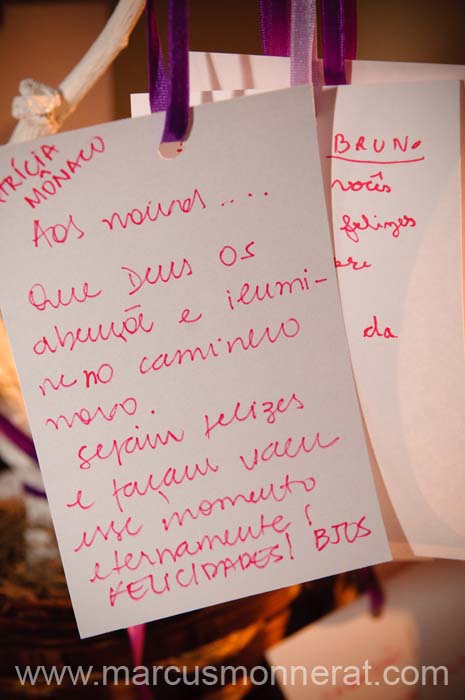 TRÍCIA
MÔNACO
Aos noivos....
Que Deus os
abençõe e ilumi-
ne no caminho
novo.
Sejam felizes
e façam valer
esse momento
eternamente!
FELICIDADES! BJOS
BRUNO
vocês
felizes
da
www.marcusmonnerat.com